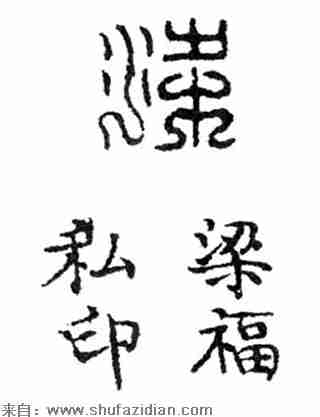 梁福
私印
来自：www.shufazidian.com